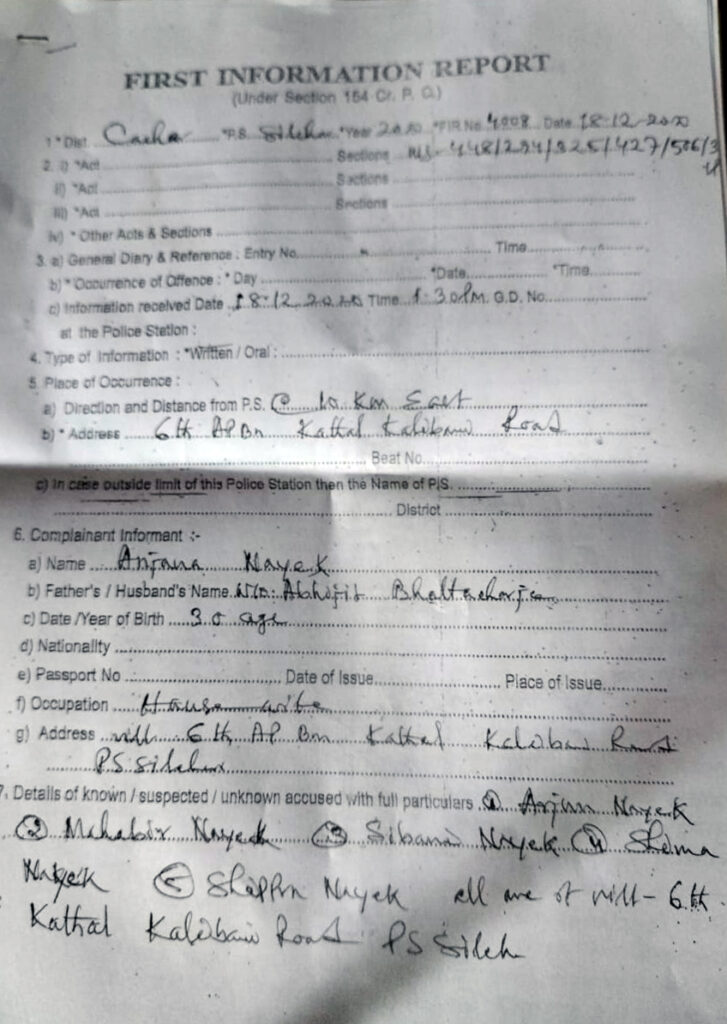 FIRST INFORMATION REPORT
(Under Section 154 Cr. P. C.)
1 * Dist. Cachar *P.S. Silchar *Year 2020 *FIR No. 4008 Date 18-12-2020
2. i) *Act Sections 448/294/325/427/506/34
ii) *Act Sections
iii) *Act Sections
iv) * Other Acts & Sections
3. a) General Diary & Reference : Entry No. Time
b) * Occurrence of Offence : * Day *Date *Time
c) Information received Date 18.12.2020 Time 1:30 PM. G.D. No.
at the Police Station :
4. Type of Information : *Written / Oral :
5. Place of Occurrence :
a) Direction and Distance from P.S. @ 10 Km East
b) * Address 6th AP Bn Kathal Kalibari Road
Beat No.
c) In case outside limit of this Police Station then the Name of P.S.
District
6. Complainant Informant :-
a) Name Anjana Nayek
b) Father's / Husband's Name W/O: Abhijit Bhattacharjee
c) Date /Year of Birth 30 age
d) Nationality
e) Passport No Date of Issue Place of Issue
f) Occupation House wife
g) Address vill 6th AP Bn Kathal Kalibari Road
PS Silchar
7. Details of known / suspected / unknown accused with full particulars ① Arjun Nayek
② Mahabir Nayek ③ Sibani Nayek ④ Shima
Nayek ⑤ Nayek all are of vill- 6th
Kathal Kalibari Road PS Silch